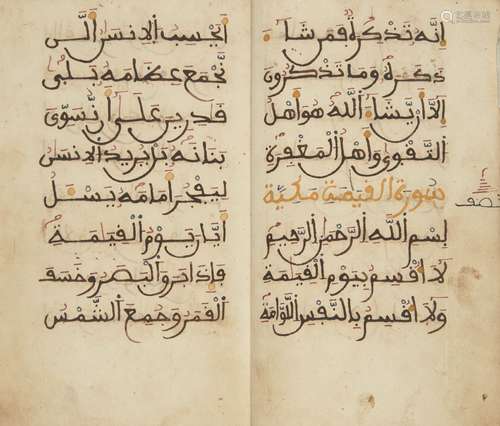 انه تذكرة فمن شاء
ذكره وما تذكرون
الا ان يشاء الله هو اهل
التقوى واهل المغفرة
سورة القيمة مكية
نصف
بسم الله الرحمن الرحيم
لا اقسم بيوم القيمة
ولا اقسم بالنفس اللوامة
ايحسب الانسن الن
نجمع عظامه بلى
قدرين على ان نسوى
بنانه بل يريد الانسن
ليفجر امامه يسل
ايان يوم القيمة
فاذا برق البصر وخسف
القمر وجمع الشمس